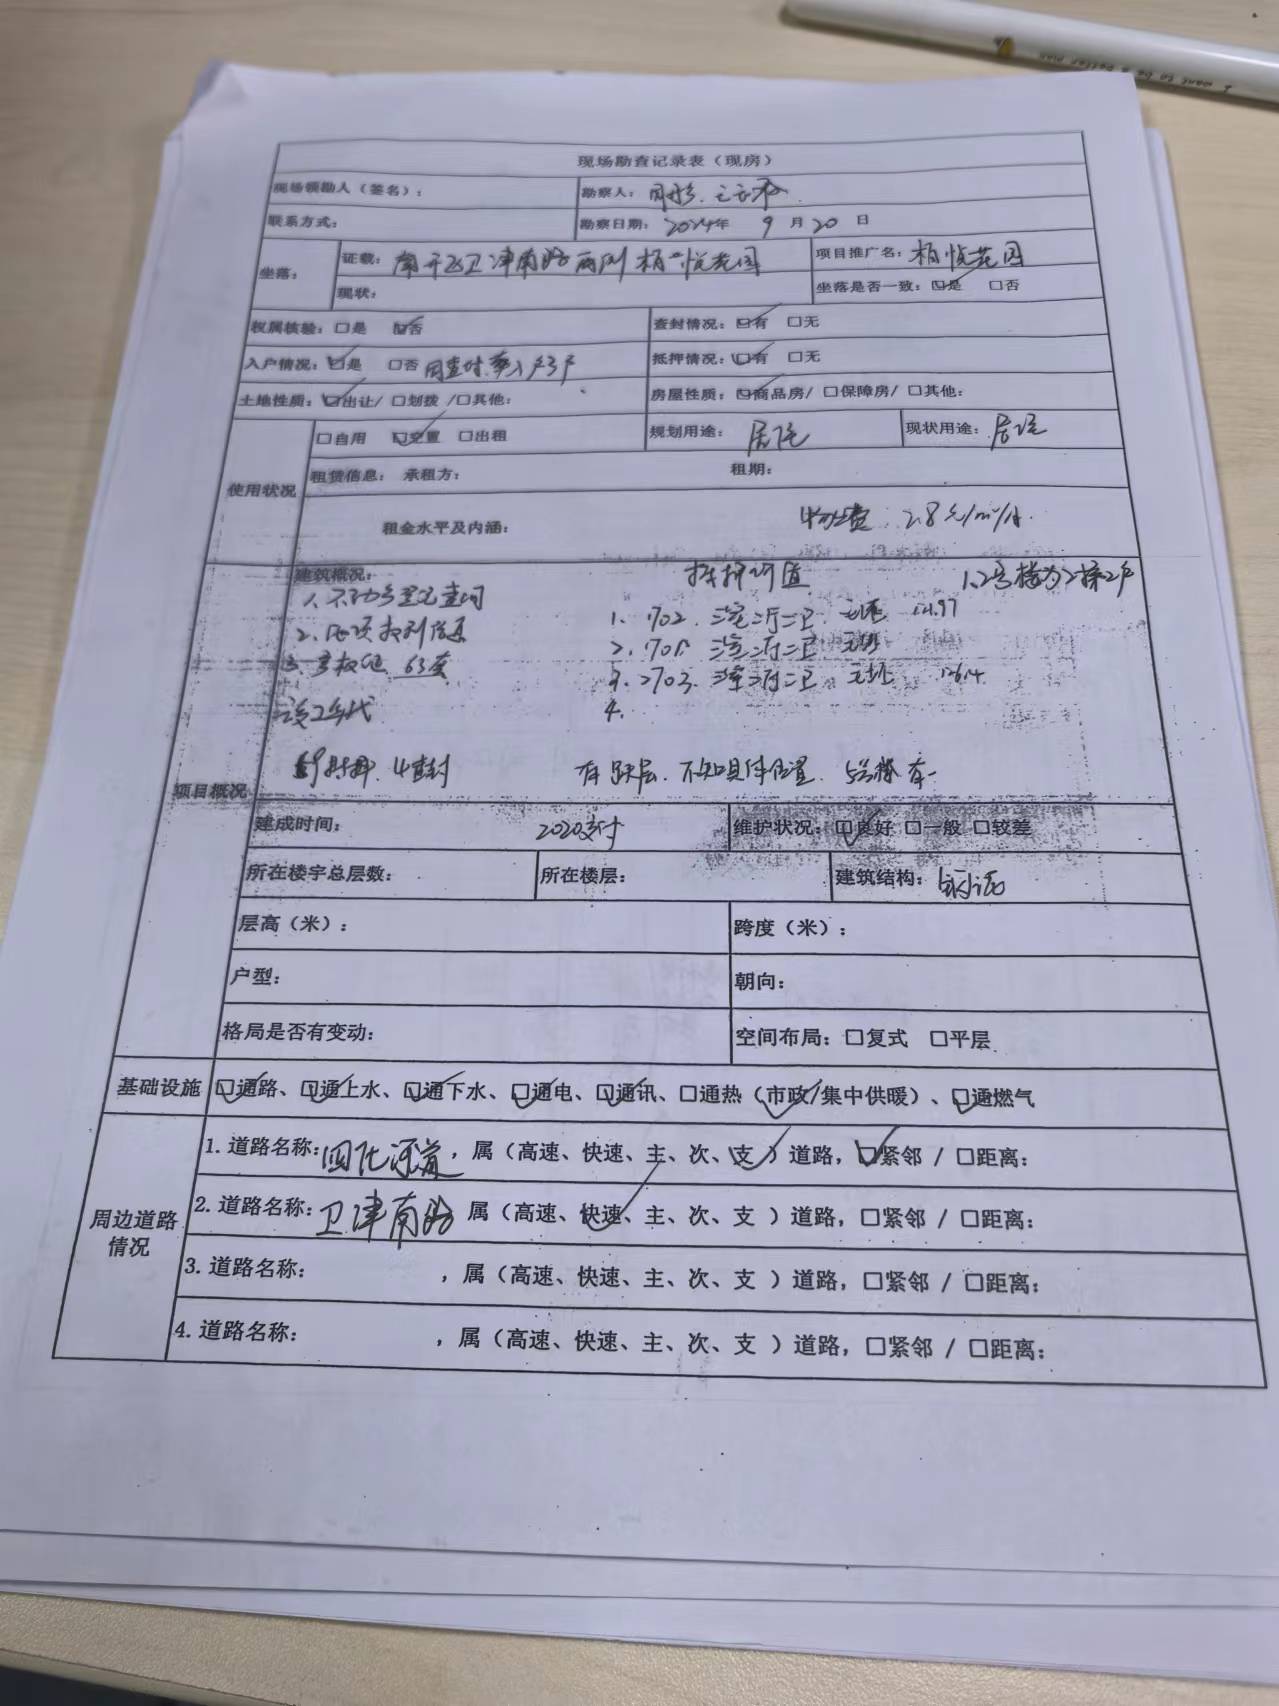 I want to be a better man
现场勘查记录表（现房）
现场领勘人（签名）： 勘察人：
联系方式： 勘察日期：2024年 9 月 20 日
坐落： 证载：南开区卫津南路西侧柏悦花园 项目推广名：柏悦花园
现状： 坐落是否一致：☑是 □否
权属核验：□是 ☑否 查封情况：☑有 □无
入户情况：☑是 □否 入户3户 抵押情况：☑有 □无
土地性质：☑出让/ □划拨 /□其他： 房屋性质：☑商品房/ □保障房/ □其他：
使用状况 □自用 ☑空置 □出租 规划用途：居住 现状用途：居住
租赁信息： 承租方： 租期：
租金水平及内涵： 物业费：2.8元/m²/月.
项目概况 建筑概况： 抵押价值 1.2号楼为2梯2户
1. 702. 三室二厅二卫
2. 三室二厅二卫
3. 2703. 三室二厅二卫
3. 63套
竣工年代
4.
抵押. 4查封 有跃层. 不知具体位置. 5号楼有
建成时间： 维护状况：☑良好 □一般 □较差
所在楼宇总层数： 所在楼层： 建筑结构：钢混
层高（米）： 跨度（米）：
户型： 朝向：
格局是否有变动： 空间布局：□复式 □平层
基础设施 ☑通路、☑通上水、☑通下水、☑通电、☑通讯、□通热（市政/集中供暖）、☑通燃气
周边道路情况 1. 道路名称：四化河道，属（高速、快速、主、次、支 ）道路，☑紧邻 / □距离：
2. 道路名称：卫津南路 属（高速、快速、主、次、支 ）道路，□紧邻 / □距离：
3. 道路名称： ，属（高速、快速、主、次、支 ）道路，□紧邻 / □距离：
4. 道路名称： ，属（高速、快速、主、次、支 ）道路，□紧邻 / □距离：